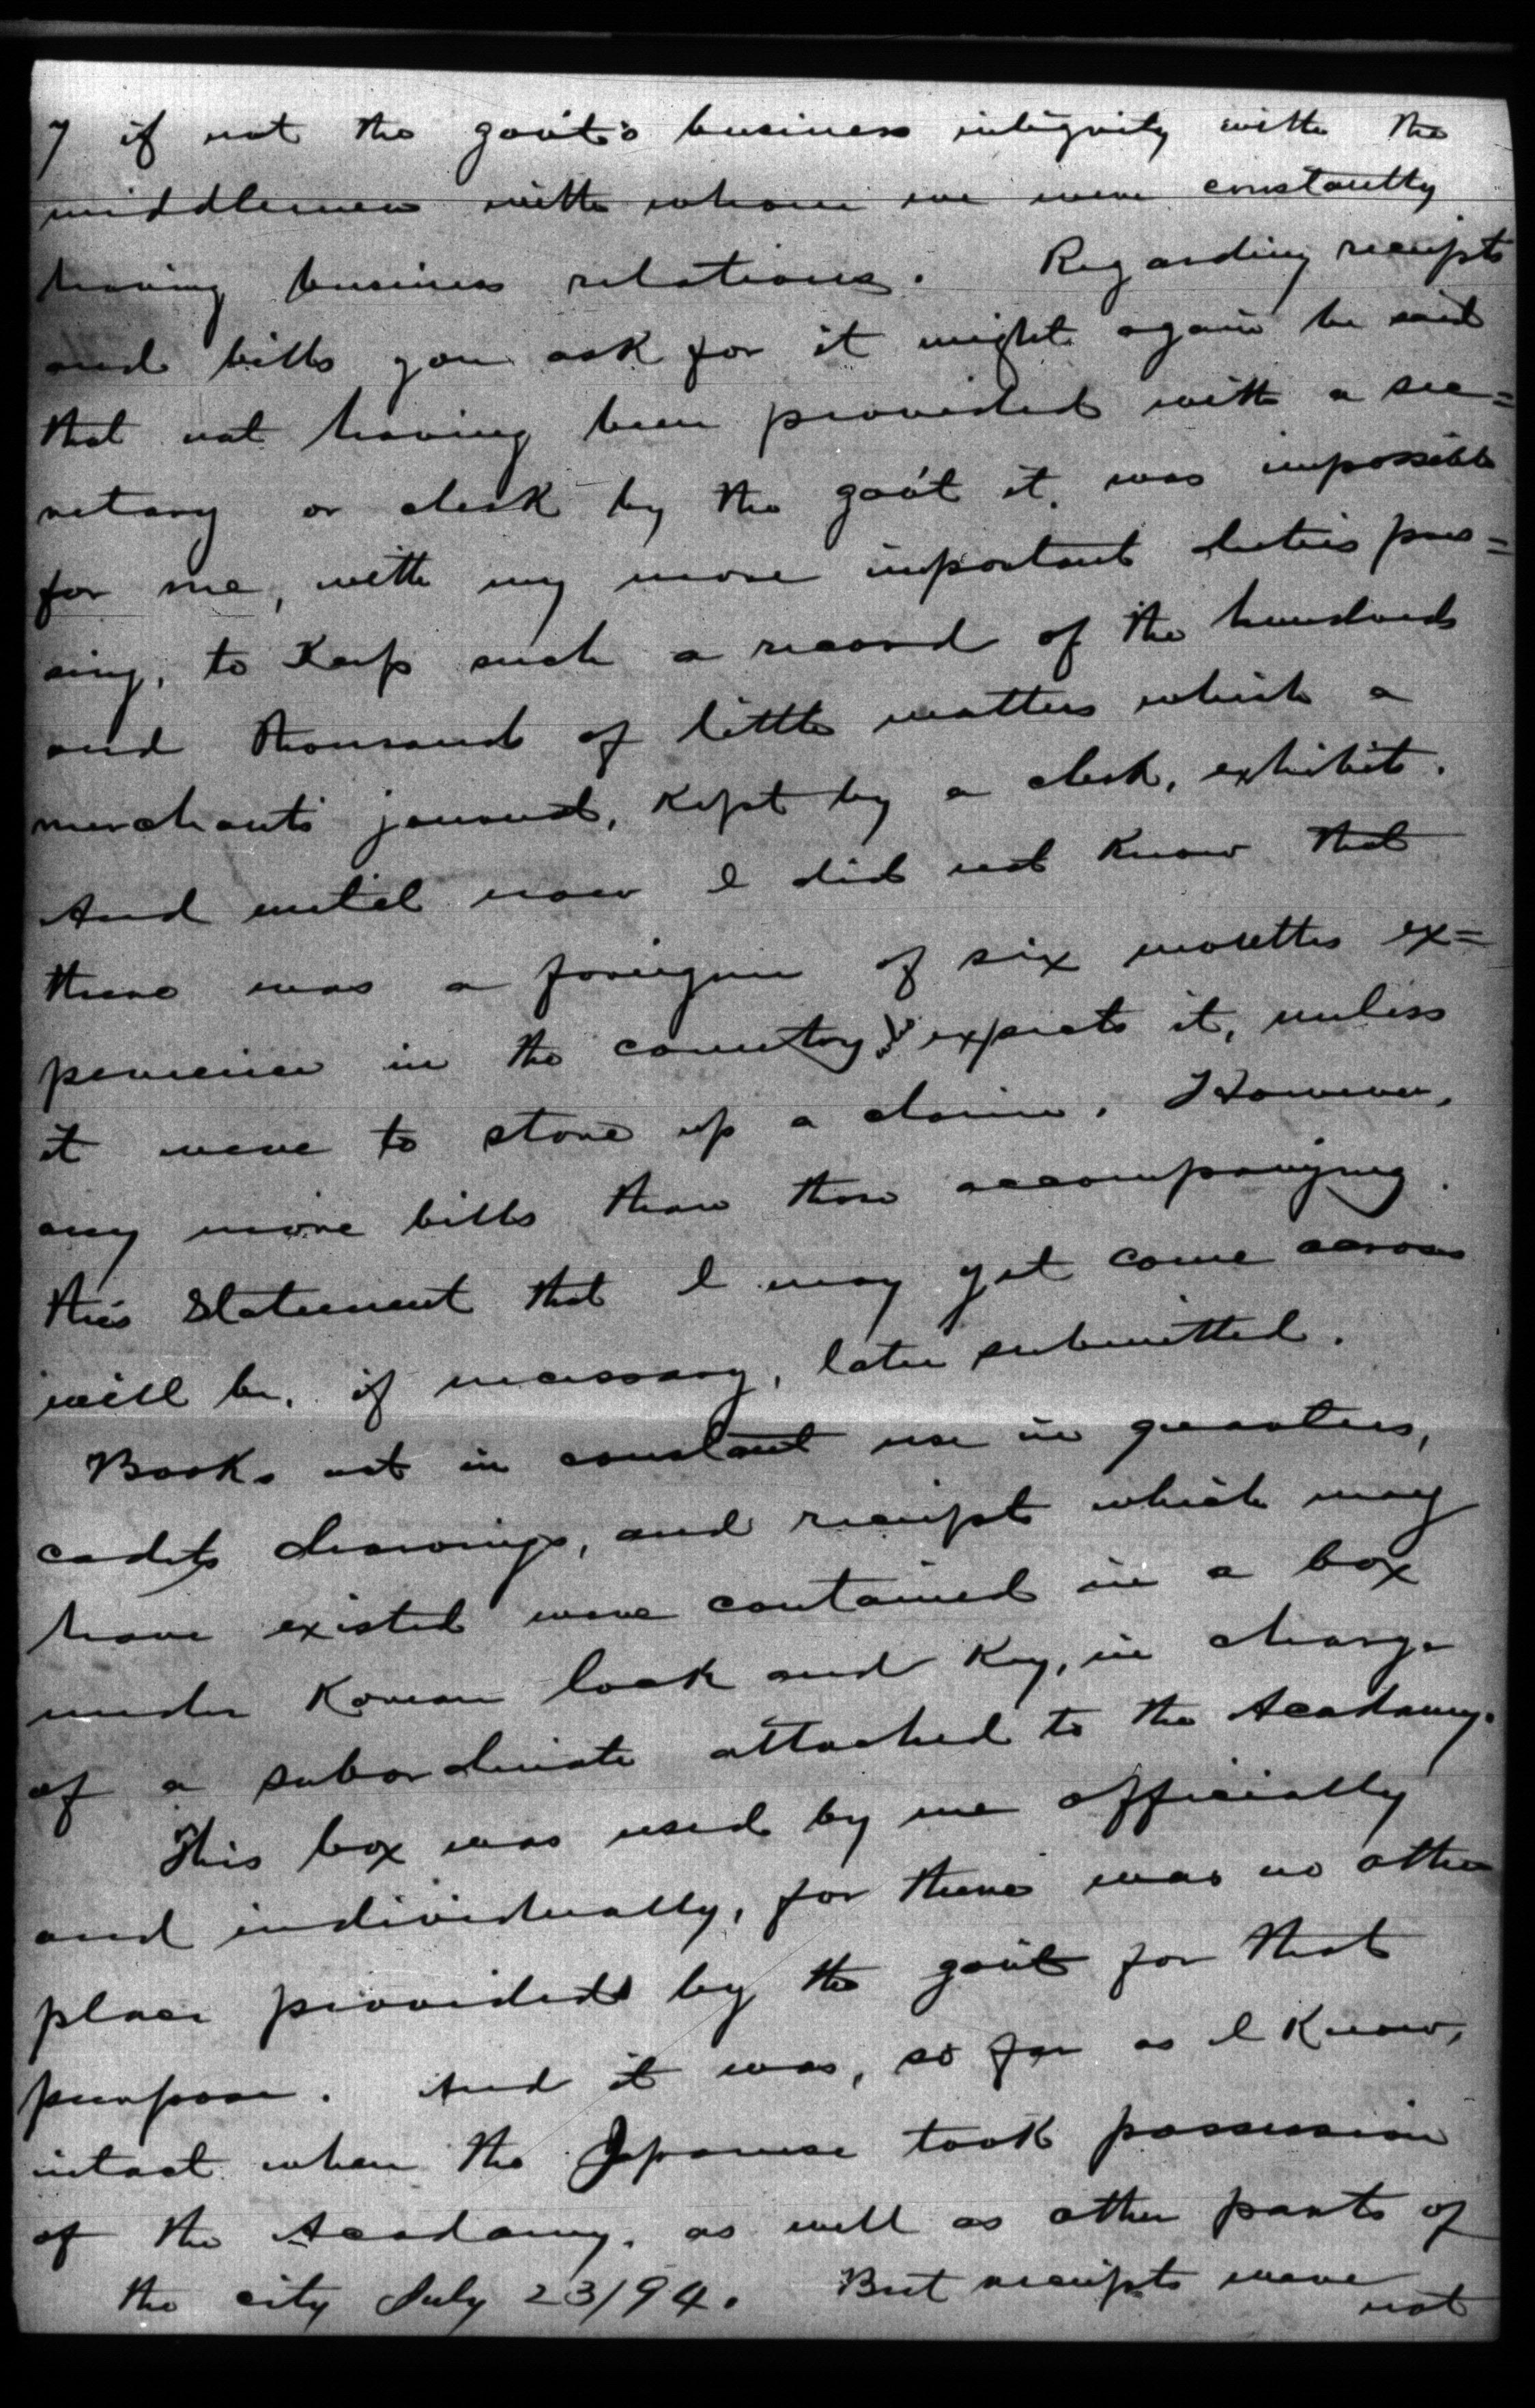 7 if not the gov't's business integrity with the
middlemen with whom we were constantly
having business relations. Regarding receipts
and bills you ask for it might again be said
that not having been provided with a sec=
retary or clerk by the gov't it was impossible
for me, with my more important duties pres=
sing, to keep such a record of the hundreds
and thousands of little matters which a
merchant's journal, kept by a clerk, exhibits.
And until now I did not know that
there was a foreigner of six months ex=
perience in the country expects it, unless
it were to store up a claim. However,
any more bills than those accompanying
this Statement that I may yet come across
will be, if necessary, later submitted.
Books not in constant use in quarters,
cadets drawings, and receipts which may
have existed were contained in a box
under Korean lock and key, in charge
of a subordinate attached to the Academy.
This box was used by me officially
and individually, for there was no other
place provided by the gov't for that
purpose. And it was, so far as I know,
intact when the Japanese took possession
of the Academy, as well as other parts of
the city July 23/94. But receipts were
not